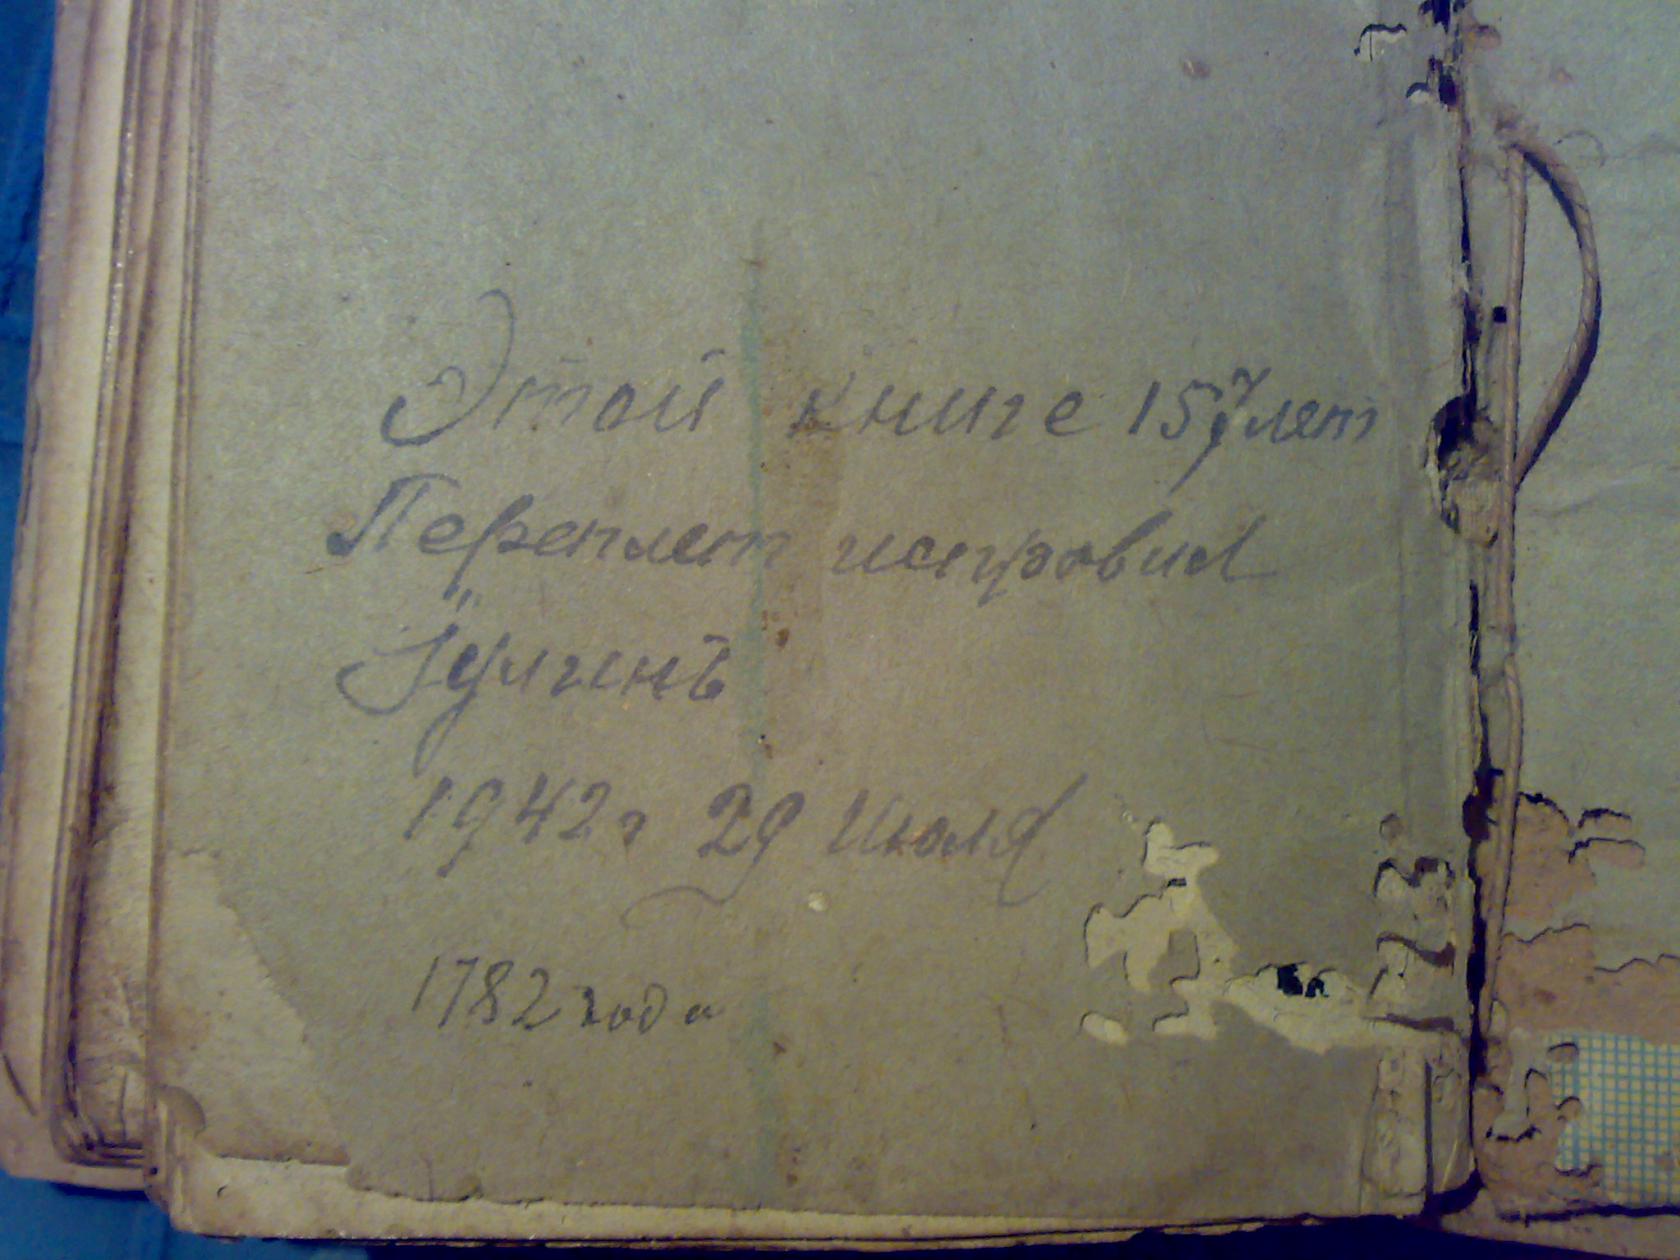 Этой книге 157 лет
Переплет исправил
1942 г 29 Июля
1782 года